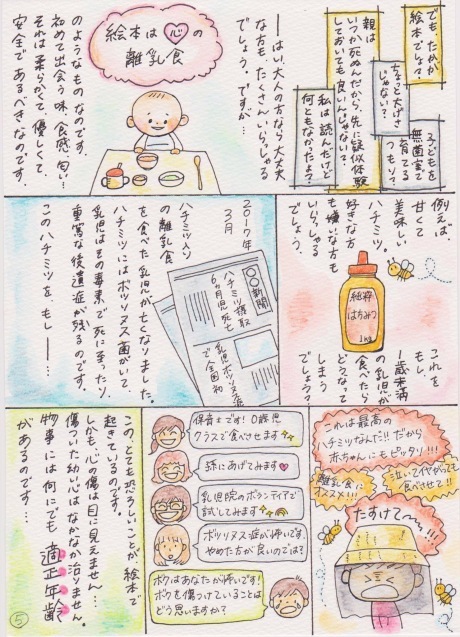 でも、たかが
絵本でしょ？
ちょっと大げさ
じゃない？
子どもを
無菌室で
育てる
つもり？
親は
いつか死ぬんだから、先に疑似体験
しておいても良いんじゃない？
私は読んだけど
何ともなかったよ？
――はい、大人の方なら大丈夫
な方も、たくさんいらっしゃる
でしょう。ですが…
絵本は心の
離乳食
のようなものなのです。
初めて出会う味・食感・匂い…
それは柔らかくて優しくて
安全であるべきなのです。
例えば、
甘くて
美味しい
ハチミツ。
好きな方
も嫌いな方も
いらっしゃる
でしょう。
純粋
はちみつ
1kg
これを
もし、
1歳未満
の乳児が
食べたら
どうなって
しまう
でしょう？
2017年
3月
●●新聞
ハチミツ摂取
6ヵ月児死亡
乳児ボツリヌス症
で全国初
ハチミツ入り
の離乳食
を食べた乳児が亡くなりました。
ハチミツにはボツリヌス菌がいて、
乳児はその毒素で死に至ったり、
重篤な後遺症が残るのです。
このハチミツを、もし――…
これは最高の
ハチミツなんだ!!だから
赤ちゃんにもピッタリ!!!
離乳食に
オススメ!!!
泣いてイヤがっても
食べさせて!!
たすけて〜〜!!!
保育士です！0歳児
クラスで食べさせます
孫にあげてみます♥
乳児院のボランティアで
試してみます
ボツリヌス症が怖いです。
やめた方が良いのでは？
ボクはあなたが怖いです！
ボクを傷つけていることは
どう思いますか？
この、とても恐ろしいことが絵本で
起きているのです。
しかも、心の傷は目に見えません…
傷ついた幼い心はなかなか治りません。
物事には何にでも適正年齢
があるのです！…
⑤